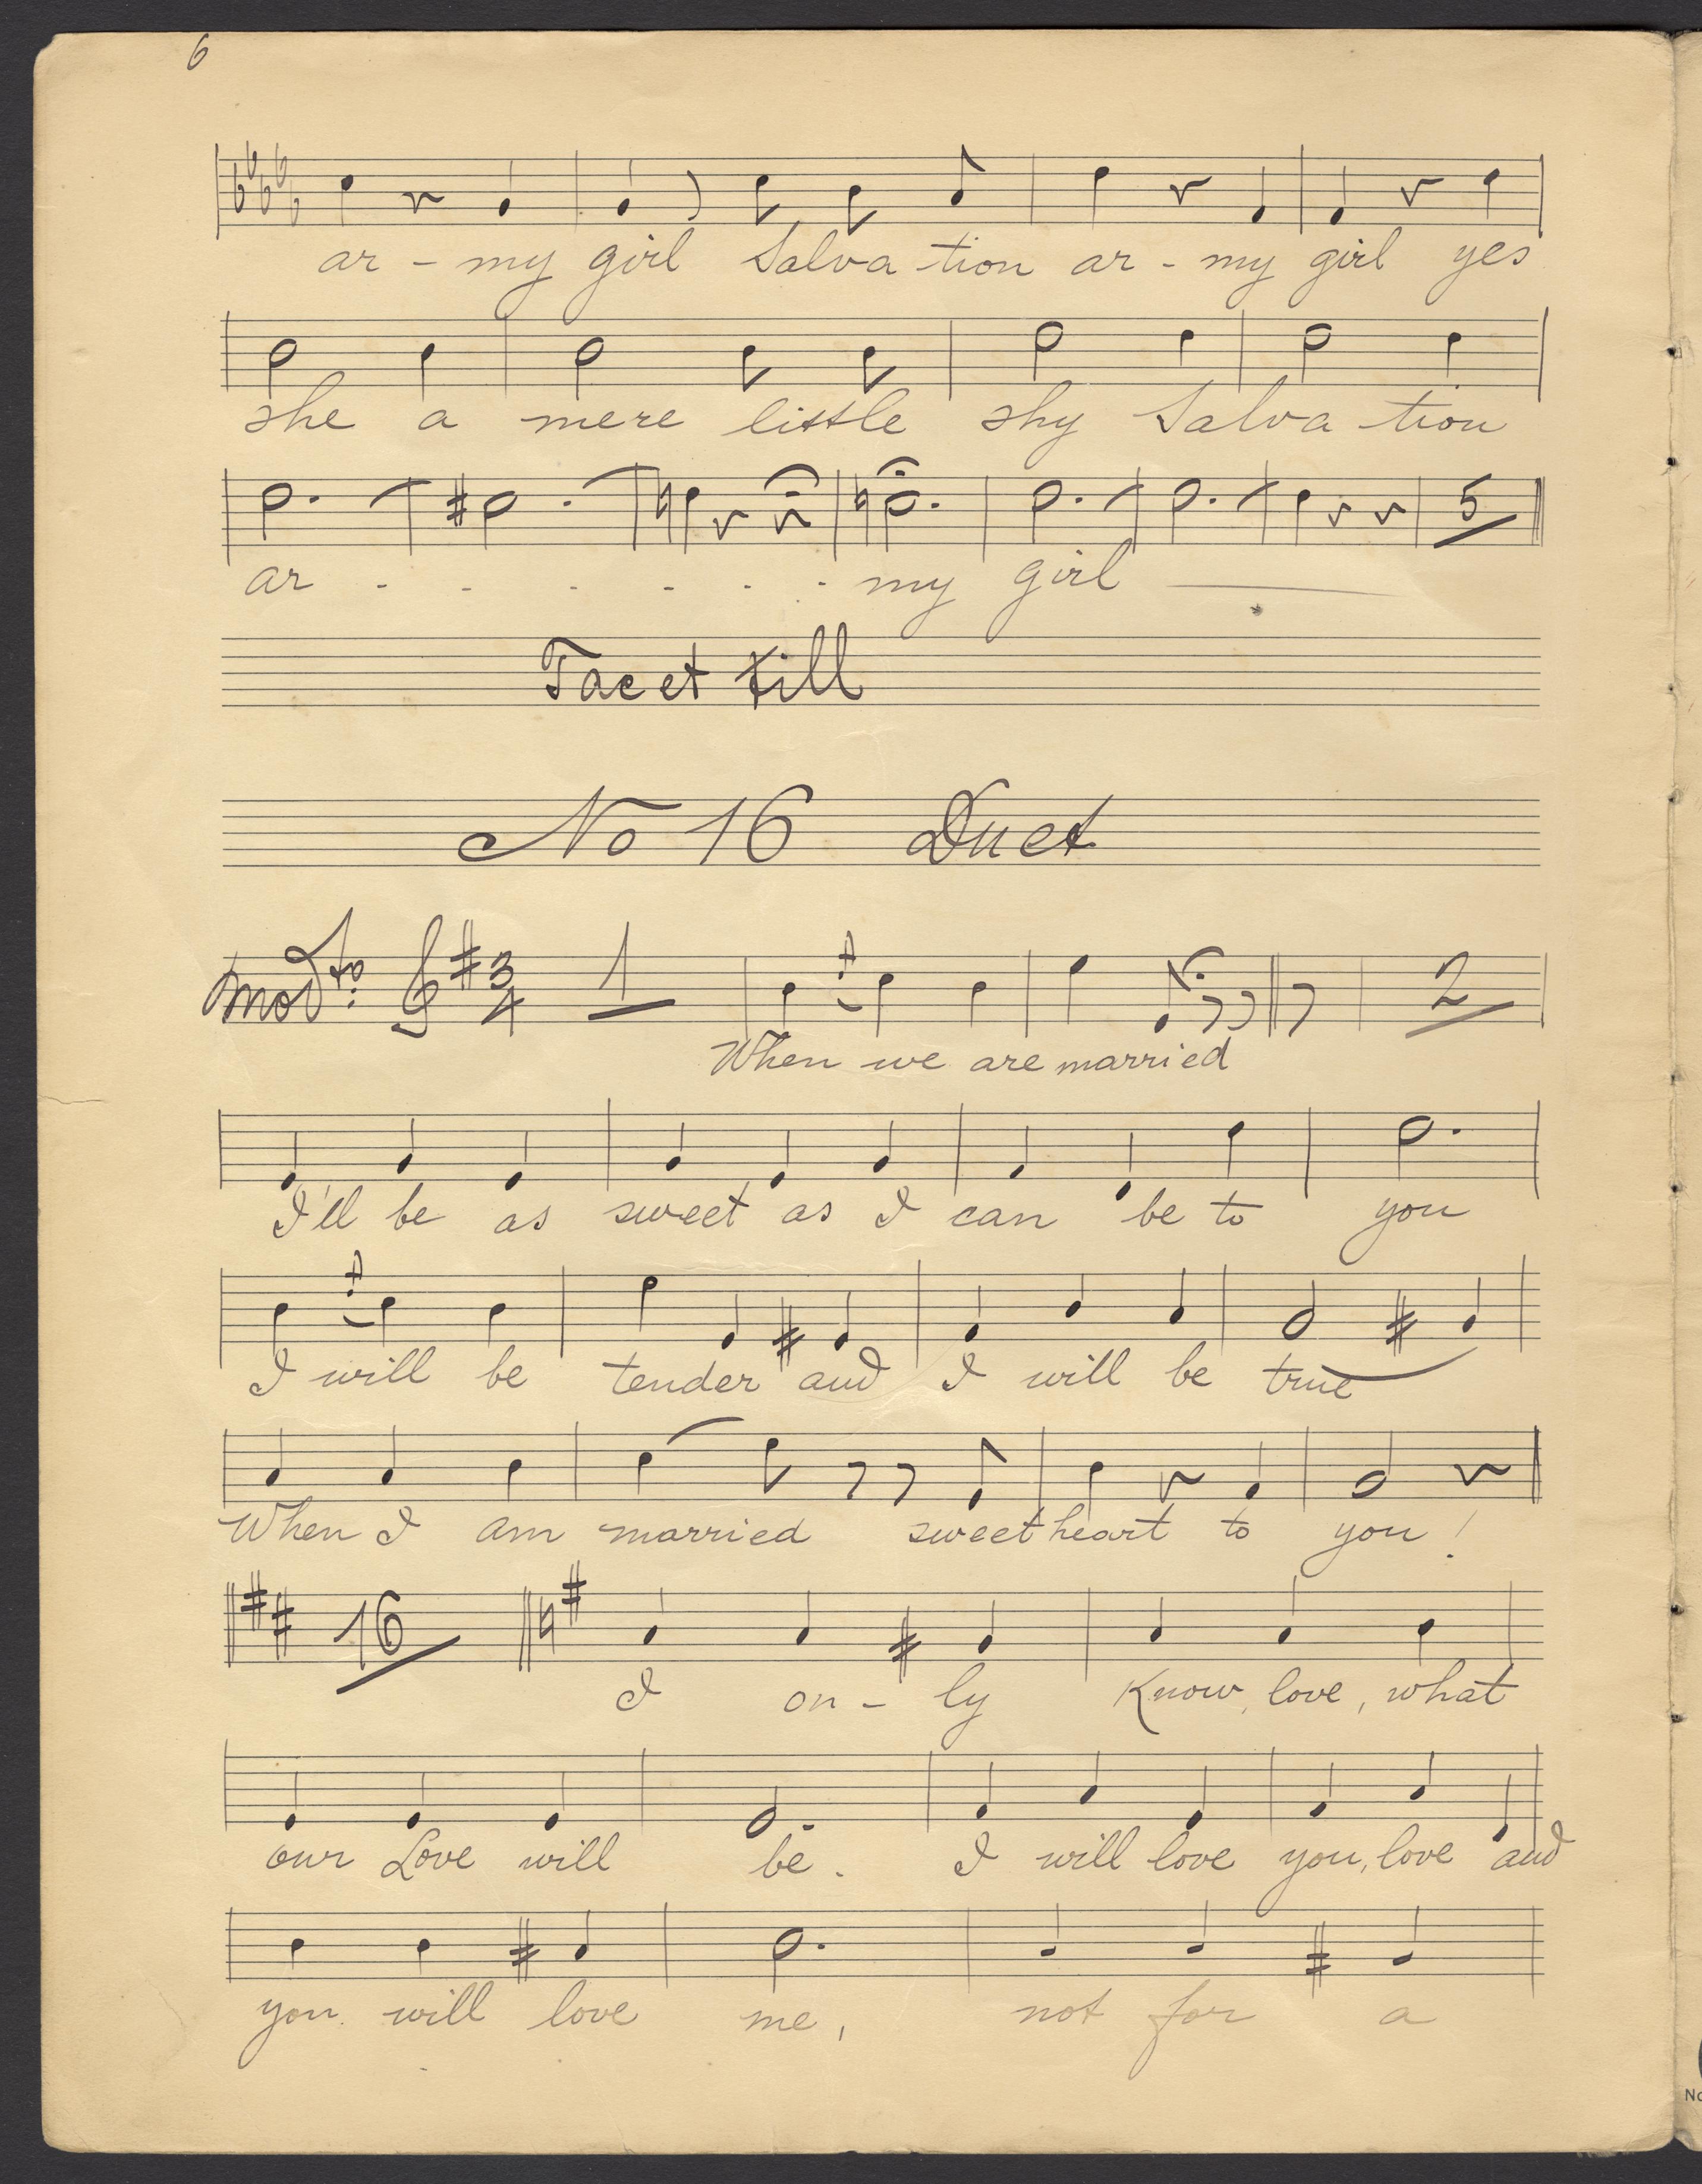 6
ar - my girl Salva - tion ar - my girl yes
she a mere little shy Salva - tion
5
ar - - - - - - my girl
Tacet till
No 16 Duet
Modto: 3/4 1 2
When we are married
I'll be as sweet as I can be to you
I will be tender and I will be true
When I am married sweetheart to you!
16
I on - ly Know, love, what
our Love will be. I will love you, love and
you will love me, not for a